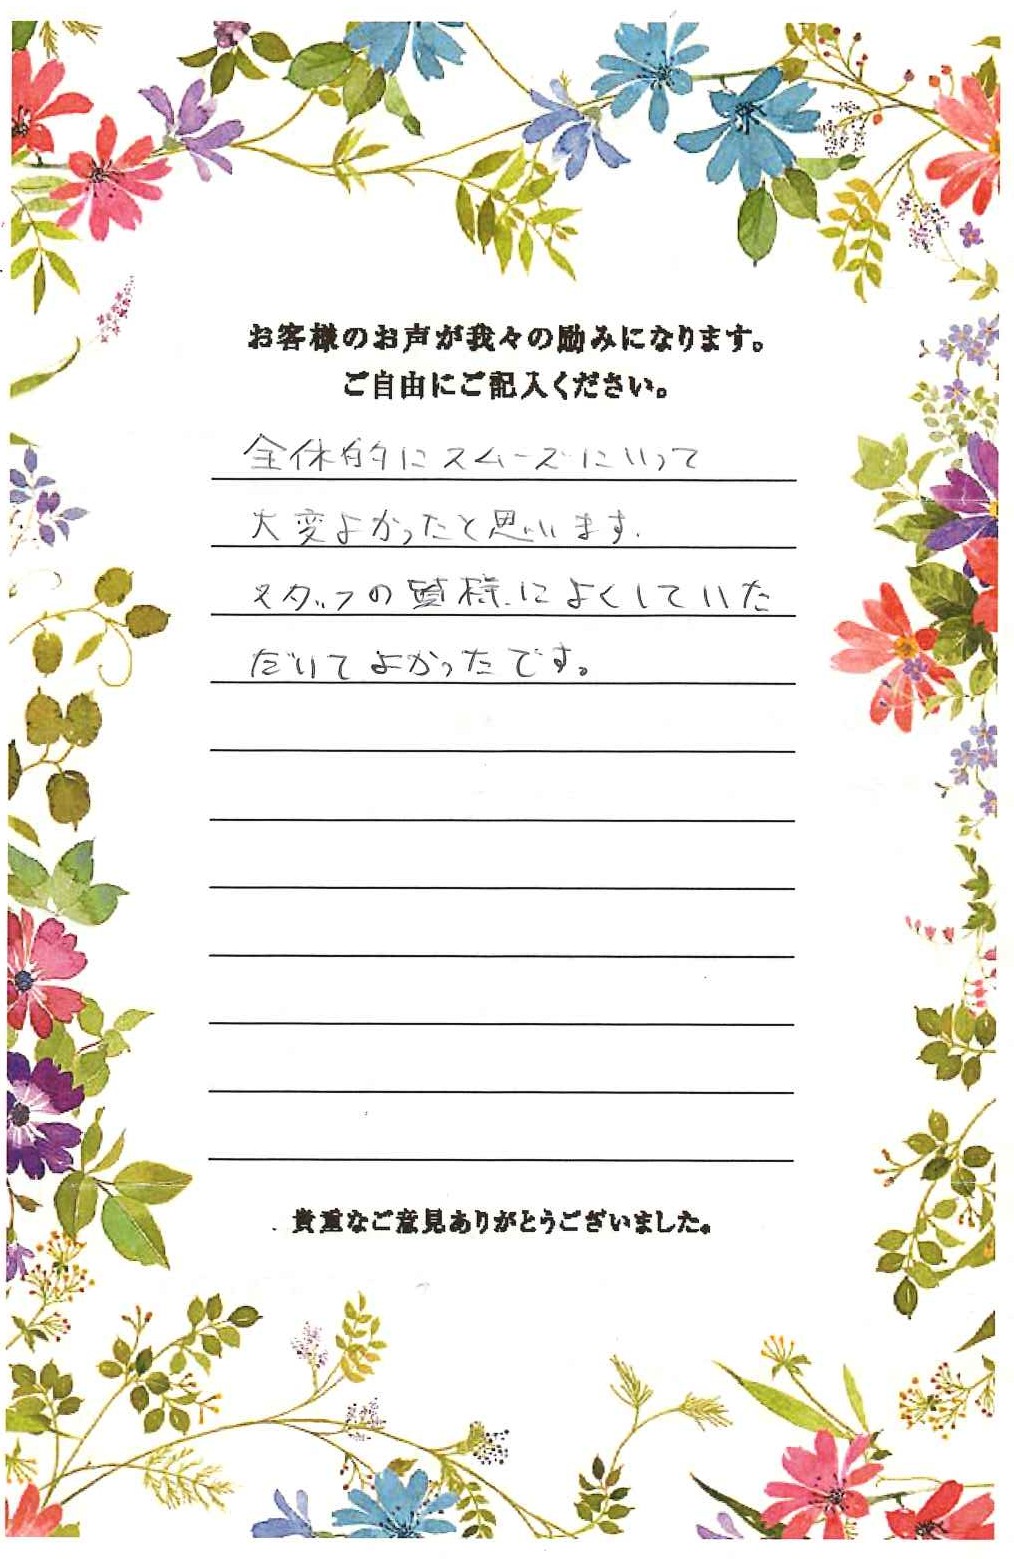 お客様のお声が我々の励みになります。
ご自由にご記入ください。
全体的にスムーズにいって
大変よかったと思います.
スタッフの皆様によくしていた
だいてよかったです。
貴重なご意見ありがとうございました。